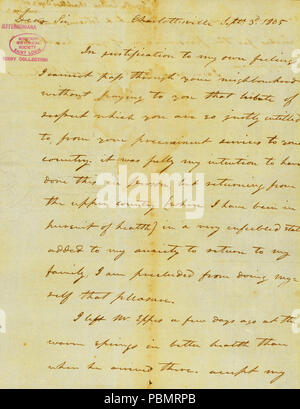 Dear Sir Charlottesville Septr. 3d. 1805
JEFFERSONIANA
MISSOURI
HISTORICAL
SOCIETY
SAINT LOUIS
BIXBY COLLECTION
In justification to my own feelings
I cannot pass through your neighbourhood
without paying to you that tribute of
respect which you are so justly entitled
to, from your preeminent services to your
country; it was fully my intention to have
done this in person, but returning from
the upper country (where I have been in
pursuit of health) in a very enfeebled state
added to my anxiety to return to my
family, I am precluded from doing my-
self that pleasure.
I left Mr Eppes a few days ago at the
warm springs in better health than
when he arrived there. accept my
alamy
Image ID: PBMRPB
www.alamy.com